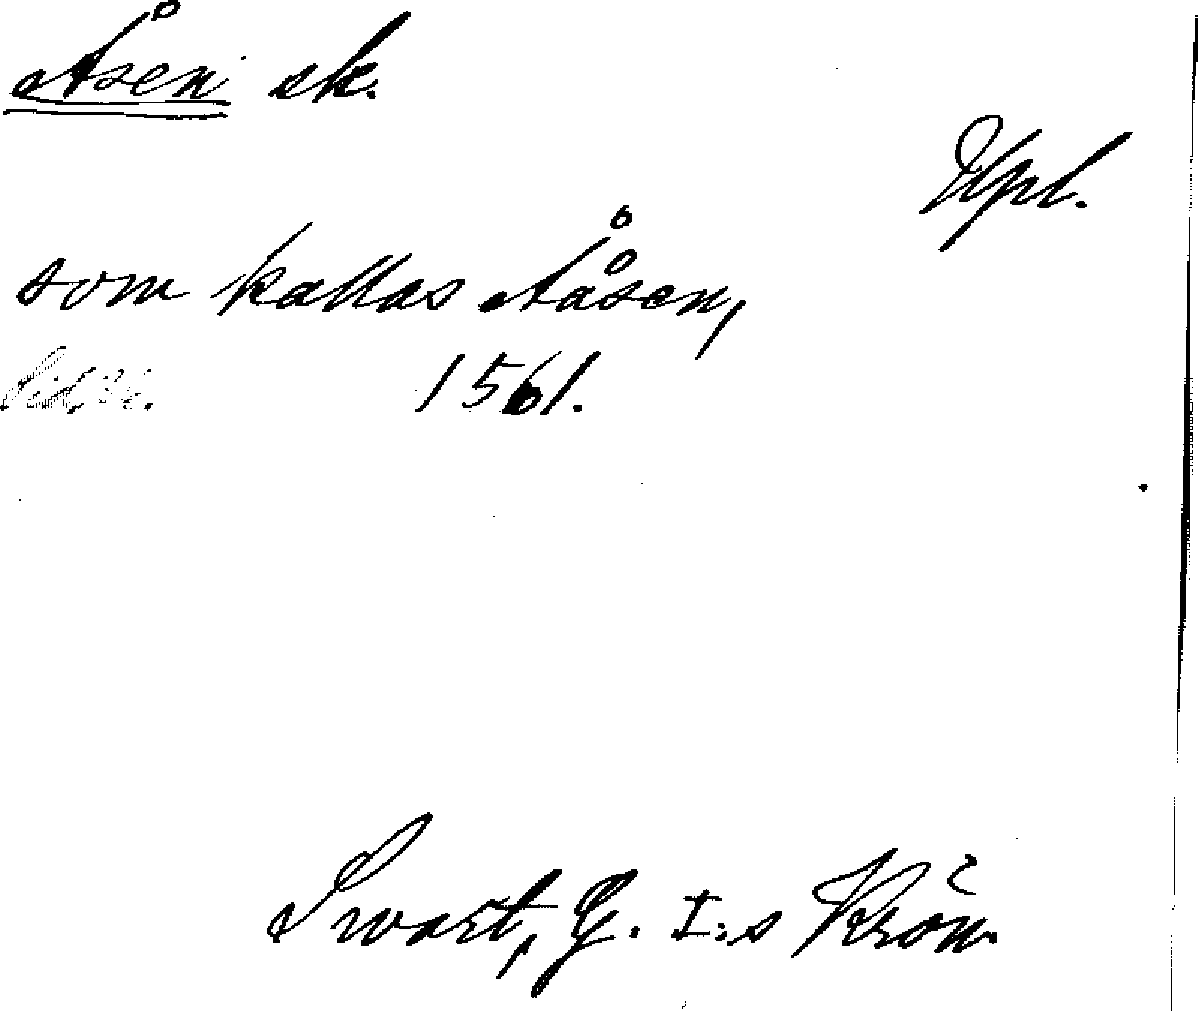 Åsen sk.
Upl.
som kallas Ååsen,
1561.
Swart, G. I:s Krön.